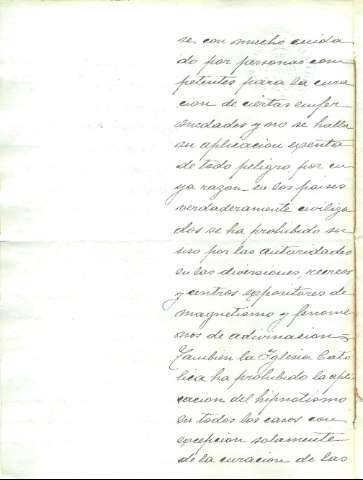 se con mucho cuida
do por personas com
petentes para la cura
cion de ciertas enfer
medades y no se halla
su aplicacion exenta
de todo peligro por cu
ya razon en los paises
verdaderamente civiliza
dos se ha prohibido su
uso por las autoridades
en las diversiones, recreos
y centros expositores de
magnetismo y fenome
nos de adivinacion
Tambien la Iglesia Cato
lica ha prohibido la apli
cacion del hipnotismo
en todos los casos con
excepcion solamente
de la curacion de las